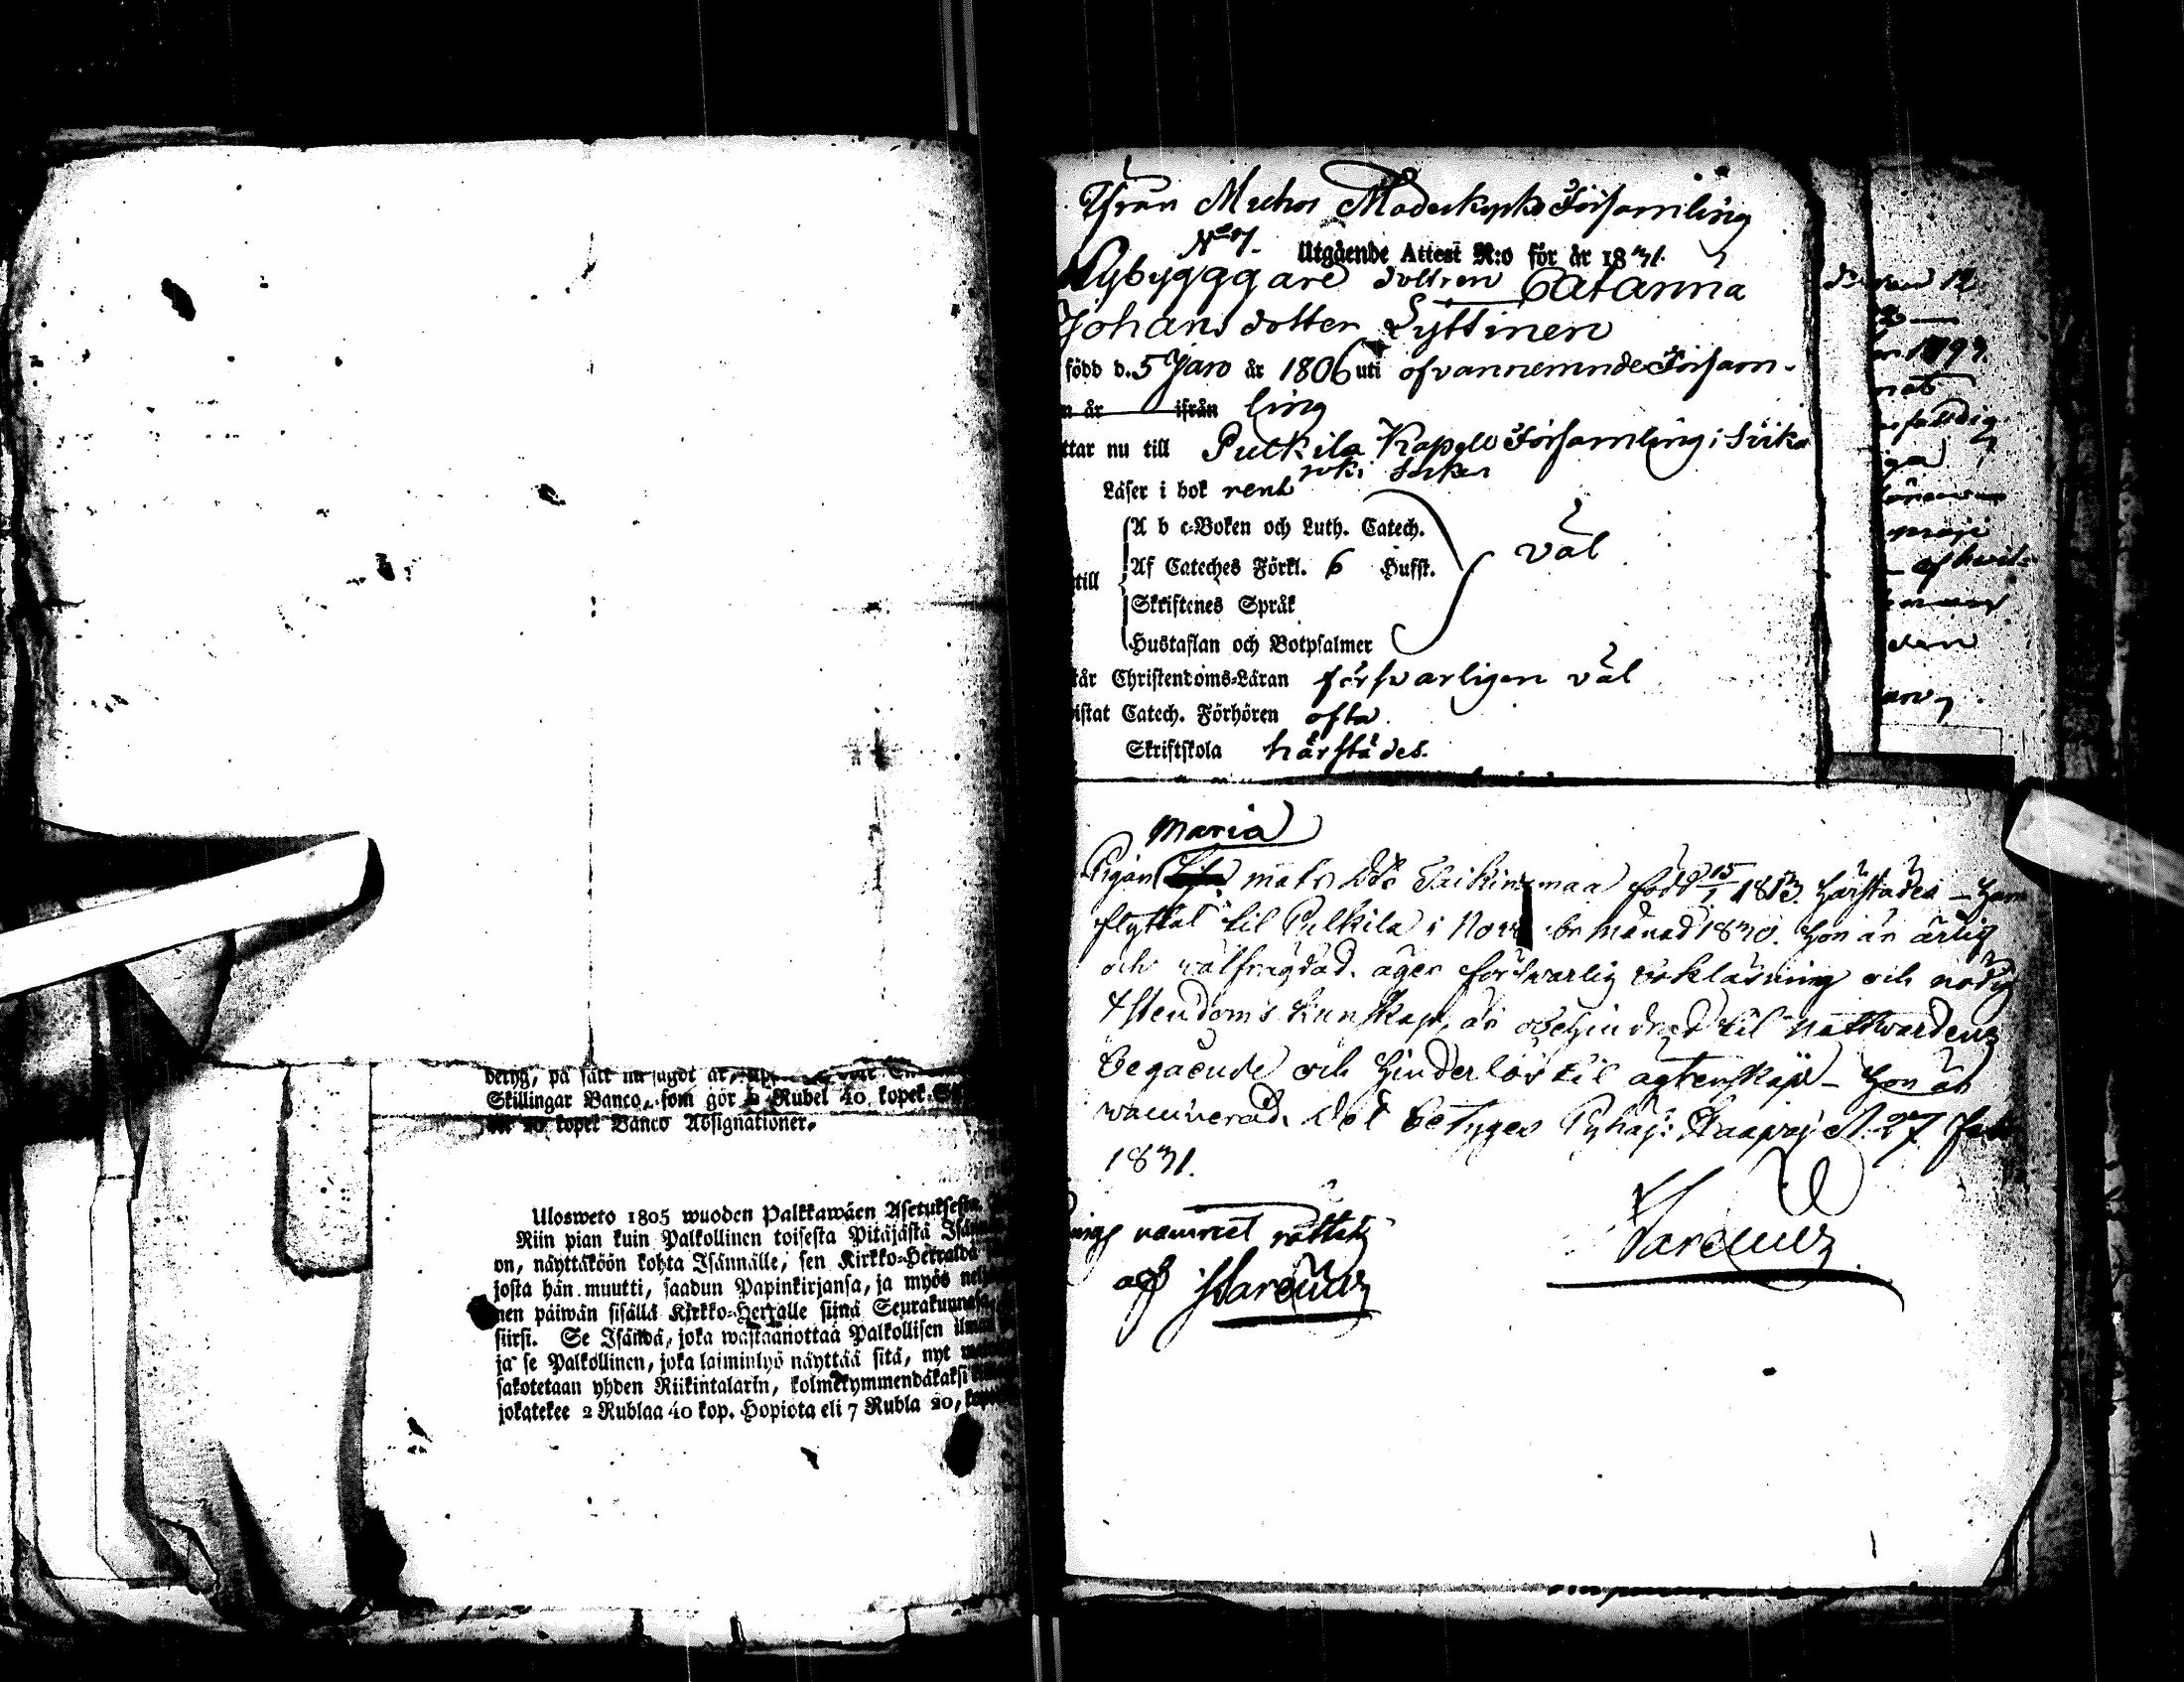 betyg, på sätt nu sagdt är,
Skillingar Banco, som gör 2 Rubel 40 kopek
20 kopek Banco Assignationer.
Ulosweto 1805 wuoden Palkkawäen Asetuksesta.
Niin pian kuin Palkollinen toisesta Pitäjästä
on, näyttäköön kohta Isännälle, sen Kirkko-Herralda
josta hän muutti, saadun Papinkirjansa, ja myös
nen päiwän sisällä Kirkko-Herralle siinä Seurakunnasa
siirsi. Se Isändä, joka wastaanottaa Palkollisen ilman
ja se Palkollinen, joka laiminlyö näyttää sitä, nyt
sakotetaan yhden Riikintalarin, kolmekymmendäkaksi
jokatekee 2 Rublaa 40 kop. Hopiota eli 7 Rubla 20,
Ifrån Muhos Moderkyrko Församling
N:o 7. Utgående Attest N:o för år 1831.
Nybyggare dottren Catarina
Johansdotter Lyttinen
född d. 5 Janv år 1806 uti ofvannemnde Försam-
n år ifrån ling
ttar nu till Pulkila Kapell Församling i Siika
joki Socken
Läser i bok rent
A b c-Boken och Luth. Catech.
Af Cateches Förkl. 6 Hufst. väl
till
Skriftenes Språk
Hustaflan och Botpsalmer
tår Christendoms-Läran försvarligen väl
istat Catech. Förhören ofta
Skriftskola härstädes.
Maria
Pigan Mats Dr född 15/1 1813. härstädes – har
flyttat til Pulkila i November månad 1830. Hon är ärlig
och välfrägdad. äger försvarlig bokläsning och nödig
Xstendoms kunskap, är obehindrad til Nattvardens
begående och hinderlös til ägtenskap – Hon är
vaccinerad. Det betygas Pyhäj: Haapaj: d. 27 Feb
1831.
namnet rättat
af